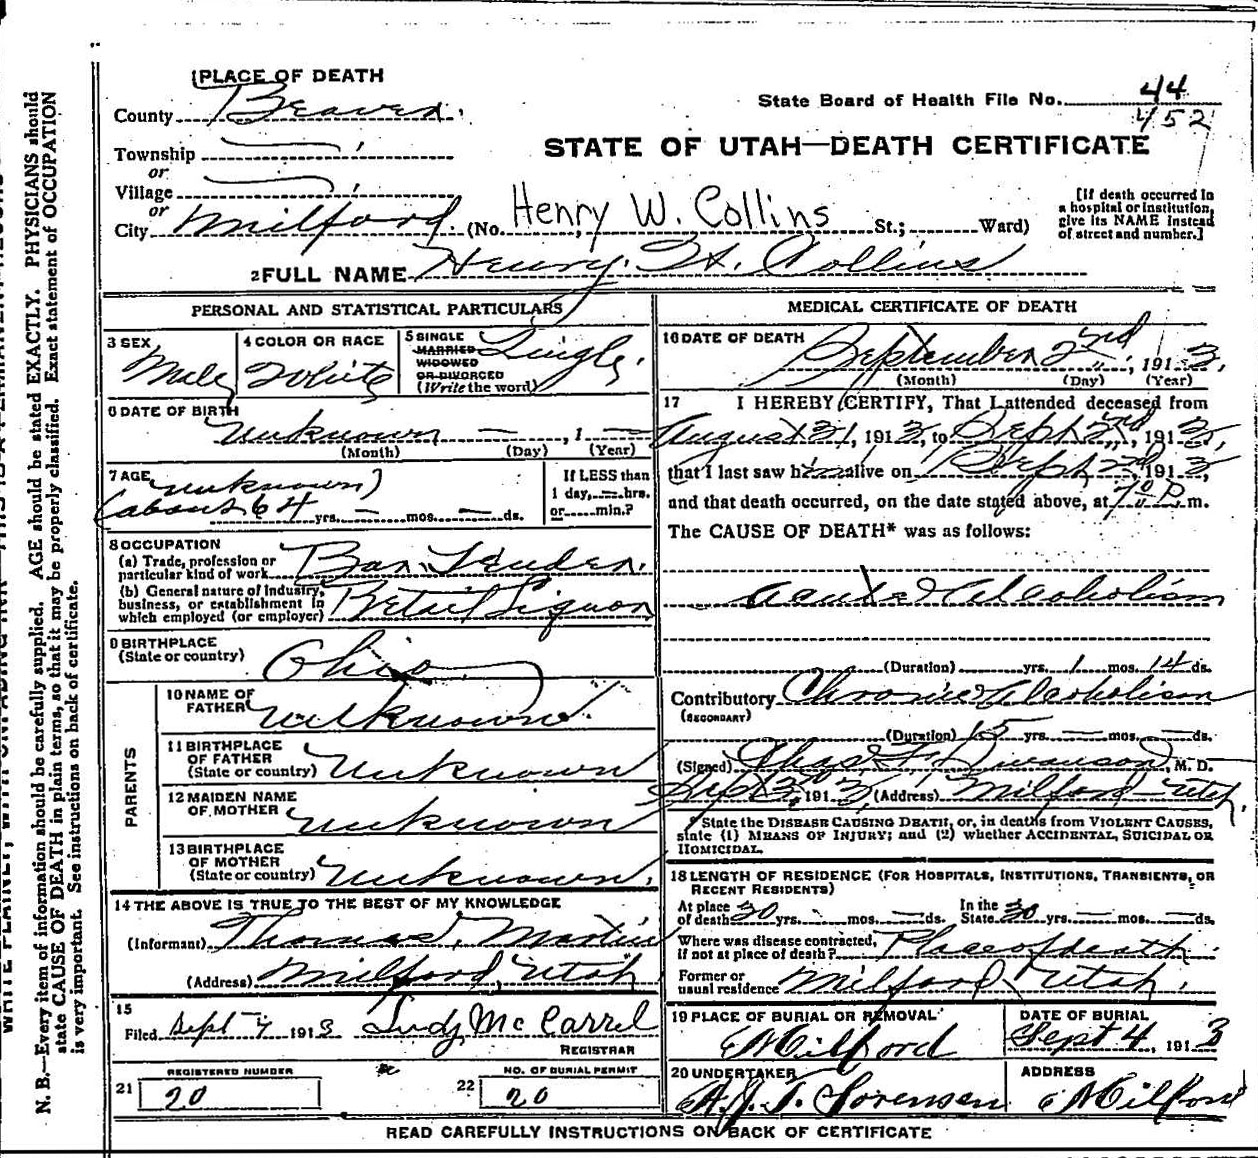 1 PLACE OF DEATH
County Beaver.
State Board of Health File No. 44
452
Township
or
STATE OF UTAH—DEATH CERTIFICATE
Village
or
City Milford. (No. Henry W. Collins St.; Ward)
[If death occurred in
a hospital or institution,
give its NAME instead
of street and number.]
2 FULL NAME Henry. W. Collins
PERSONAL AND STATISTICAL PARTICULARS
3 SEX
Male
4 COLOR OR RACE
White
5 SINGLE
MARRIED
WIDOWED
OR DIVORCED
(Write the word)
Single.
6 DATE OF BIRTH
Unknown — , 1 —
(Month) (Day) (Year)
7 AGE
unknown)
(about 64 yrs. — mos. — ds.
If LESS than
1 day, — hrs.
or min.?
8 OCCUPATION
(a) Trade, profession or
particular kind of work Bar. Tender.
(b) General nature of industry,
business, or establishment in
which employed (or employer) Retail Liquor
9 BIRTHPLACE
(State or country) Ohio
PARENTS
10 NAME OF
FATHER Unknown.
11 BIRTHPLACE
OF FATHER
(State or country) Unknown
12 MAIDEN NAME
OF MOTHER Unknown
13 BIRTHPLACE
OF MOTHER
(State or country) Unknown.
14 THE ABOVE IS TRUE TO THE BEST OF MY KNOWLEDGE
(Informant) Thomas. Martin
(Address) Milford, Utah
15
Filed Sept 7 1913 Judy McCarrel
REGISTRAR
21 REGISTERED NUMBER
20
22 NO. OF BURIAL PERMIT
20
MEDICAL CERTIFICATE OF DEATH
16 DATE OF DEATH
September 2nd, 1913.
(Month) (Day) (Year)
17 I HEREBY CERTIFY, That I attended deceased from
August 31, 1913, to Sept 2nd, 1913,
that I last saw h alive on Sept 2nd, 1913
and that death occurred, on the date stated above, at 7:00 P. m.
The CAUSE OF DEATH* was as follows:
Acute Alcoholism
(Duration) yrs. 1 mos. 14 ds.
Contributory Chronic Alcoholism
(SECONDARY)
(Duration) 15 yrs. — mos. — ds.
(Signed) Chas. F. Swanson, M. D.
Sept 3rd, 1913, (Address) Milford - Utah.
*State the DISEASE CAUSING DEATH, or, in deaths from VIOLENT CAUSES,
state (1) MEANS OF INJURY; and (2) whether ACCIDENTAL, SUICIDAL OR
HOMICIDAL.
18 LENGTH OF RESIDENCE (FOR HOSPITALS, INSTITUTIONS, TRANSIENTS, OR
RECENT RESIDENTS)
At place
of death 30 yrs. mos. — ds.
In the
State 30 yrs. — mos. — ds.
Where was disease contracted,
if not at place of death? Place of death.
Former or
usual residence Milford, Utah.
19 PLACE OF BURIAL OR REMOVAL
Milford
DATE OF BURIAL
Sept 4, 1913
20 UNDERTAKER
A. J. T. Sorensen
ADDRESS
Milford
READ CAREFULLY INSTRUCTIONS ON BACK OF CERTIFICATE
N. B.—Every item of information should be carefully supplied. AGE should be stated EXACTLY. PHYSICIANS should
state CAUSE OF DEATH in plain terms, so that it may be properly classified. Exact statement of OCCUPATION
is very important. See instructions on back of certificate.